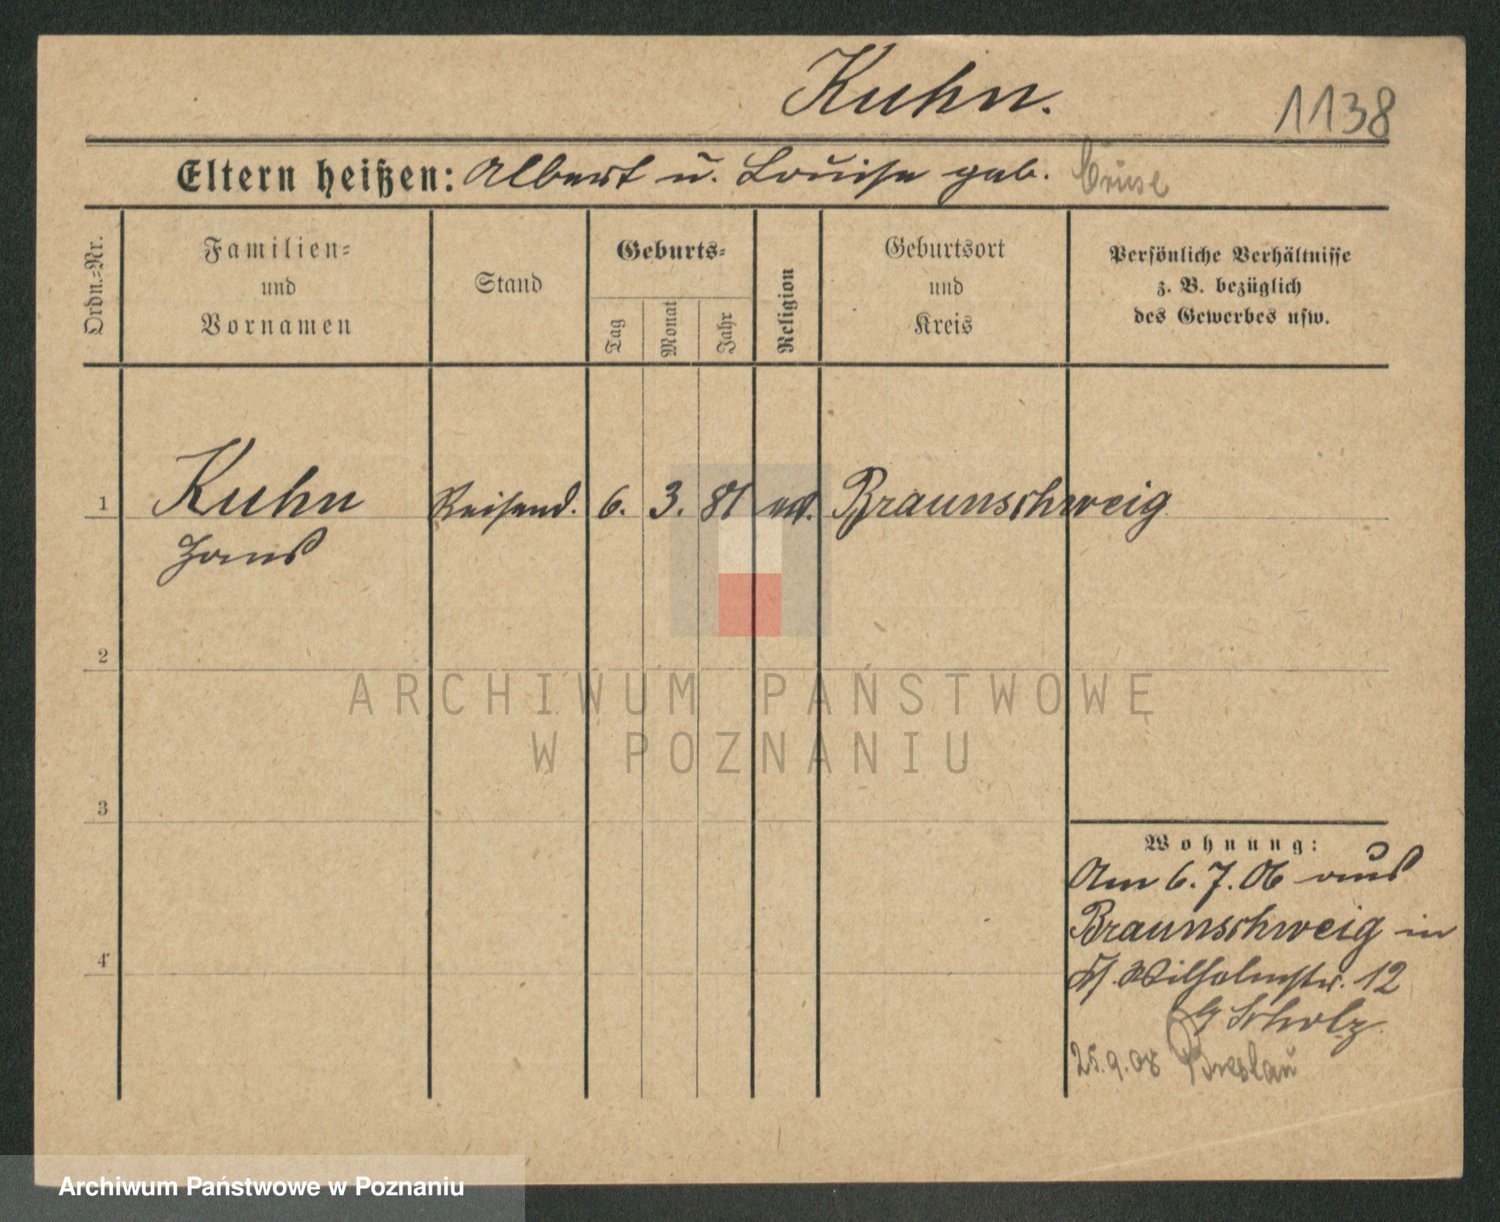 Kuhn.
1138
Eltern heißen: Albert u. Louise geb. Cruse
Ordn.-Nr.
Familien-
und
Vornamen
Stand
Geburts-
Tag
Monat
Jahr
Religion
Geburtsort
und
Kreis
Persönliche Verhältnisse
z. B. bezüglich
des Gewerbes usw.
1 Kuhn Reisend. 6. 3. 81 Braunschweig
Hans
2
ARCHIWUM PAŃSTWOWE
W POZNANIU
3
Wohnung:
Am 6.7.06 aus
Braunschweig in
4
Wilhelmstr. 12
b/ Scholz
25.9.08 Breslau
Archiwum Państwowe w Poznaniu